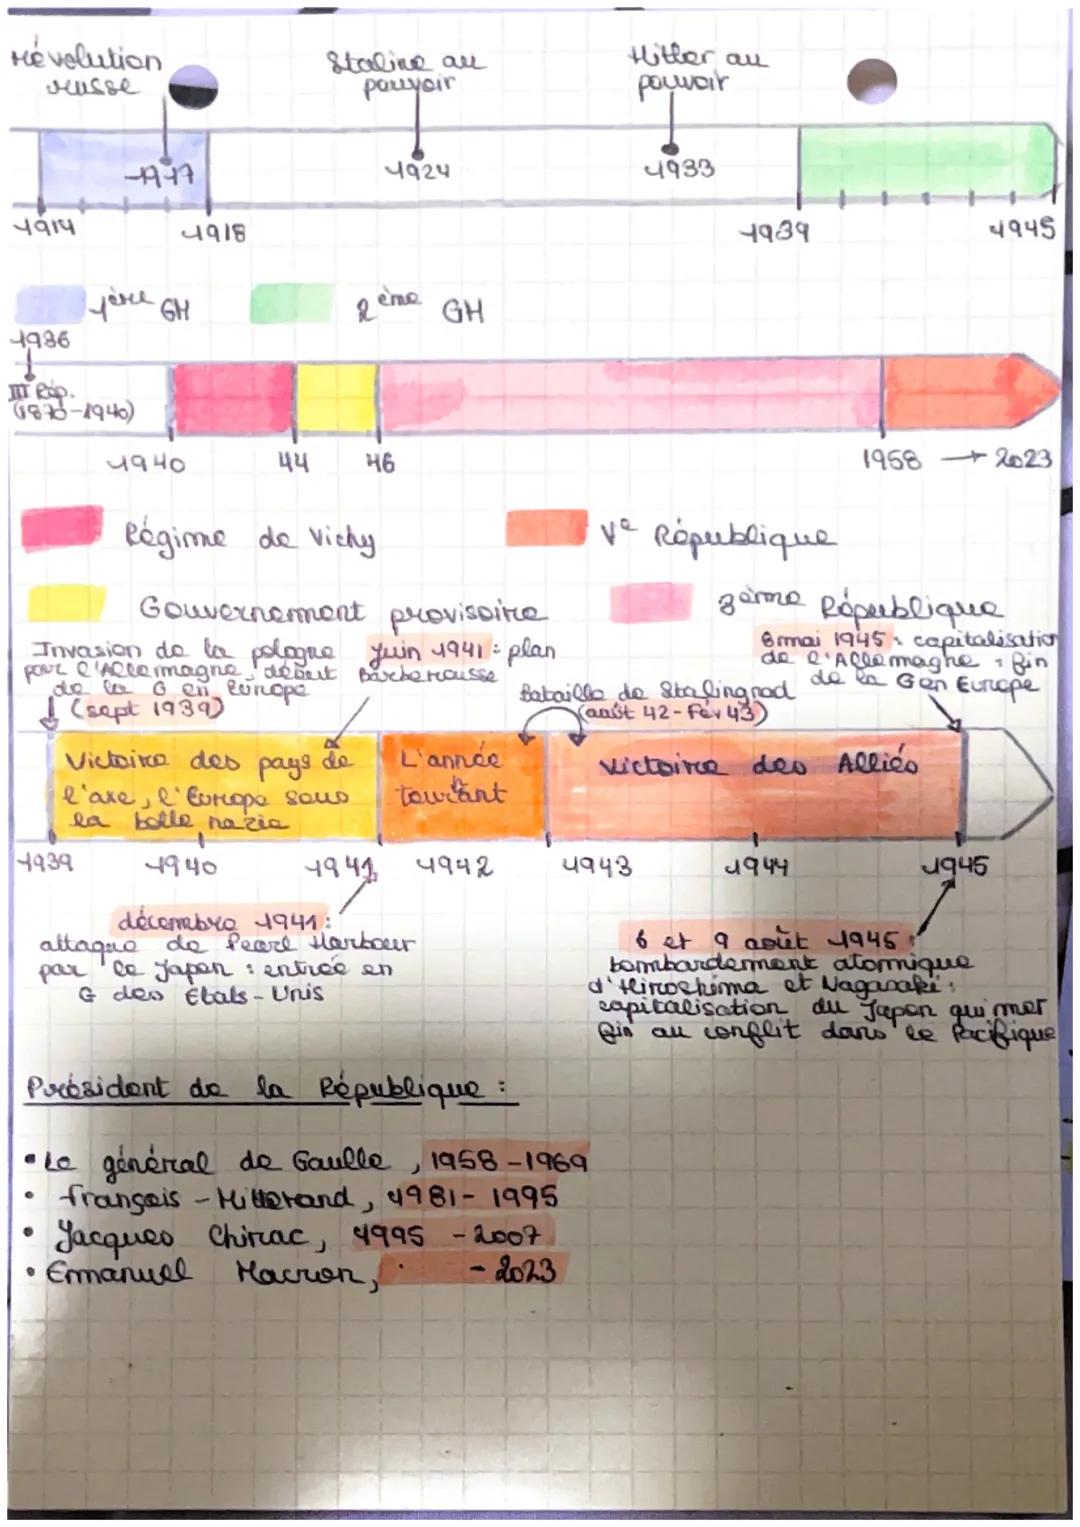 Révolution russe
Staline au pouvoir
Hitler au pouvoir
1917
1924
1933
1914
1918
1939
1945
1ère GM
2ème GM
1936
III Rép.
(1870-1940)
1940
44
46
1958 → 2023
Régime de Vichy
Ve République
Gouvernement provisoire
3ème République
Invasion de la pologne
par l'Allemagne, début
de la G en Europe
(sept 1939)
Juin 1941 : plan
Barberousse
Bataille de Stalingrad
(août 42-Fév 43)
8 mai 1945 : capitalisation
de l'Allemagne = fin
de la G en Europe
Victoire des pays de
l'axe, l'Europe sous
la botte nazie
L'année
tournant
Victoire des Alliés
1939
1940
1941
1942
1943
1944
1945
décembre 1941 :
attaque de Pearl Harbour
par le Japon : entrée en
G des États-Unis
6 et 9 août 1945 :
bombardement atomique
d'Hiroshima et Nagasaki :
capitalisation du Japon qui met
fin au conflit dans le Pacifique
Président de la République :
• Le général de Gaulle, 1958-1969
• François-Mitterand, 1981-1995
• Jacques Chirac, 1995 -2007
• Emmanuel Macron, - 2023